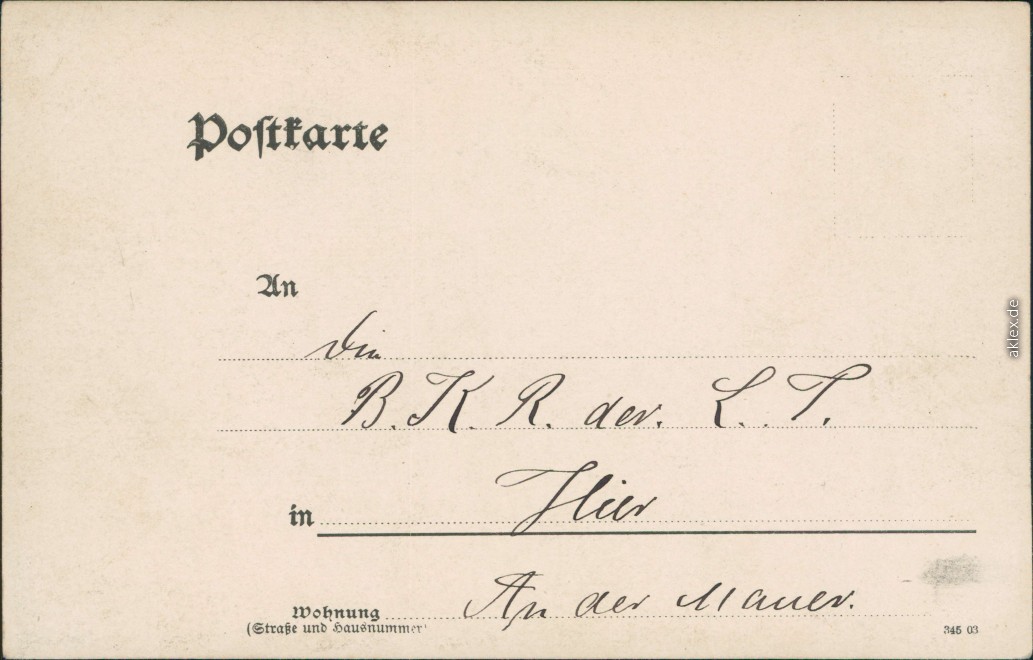 Postkarte
An
die
B. K. R. der. L. T.
in Hier
An der Mauer.
Wohnung
(Straße und Hausnummer)
345 03
aklex.de